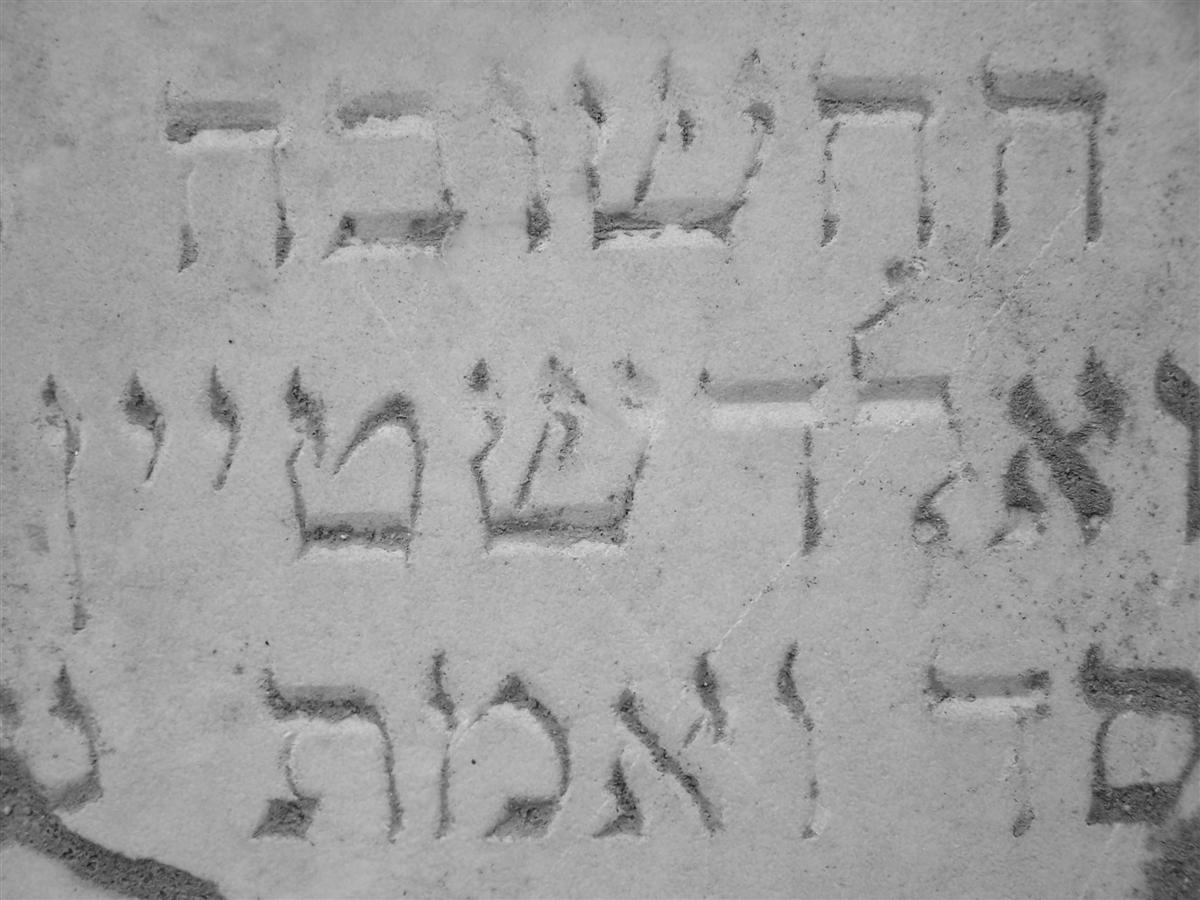 החשובה
גאלדשטיין
סד ואמת